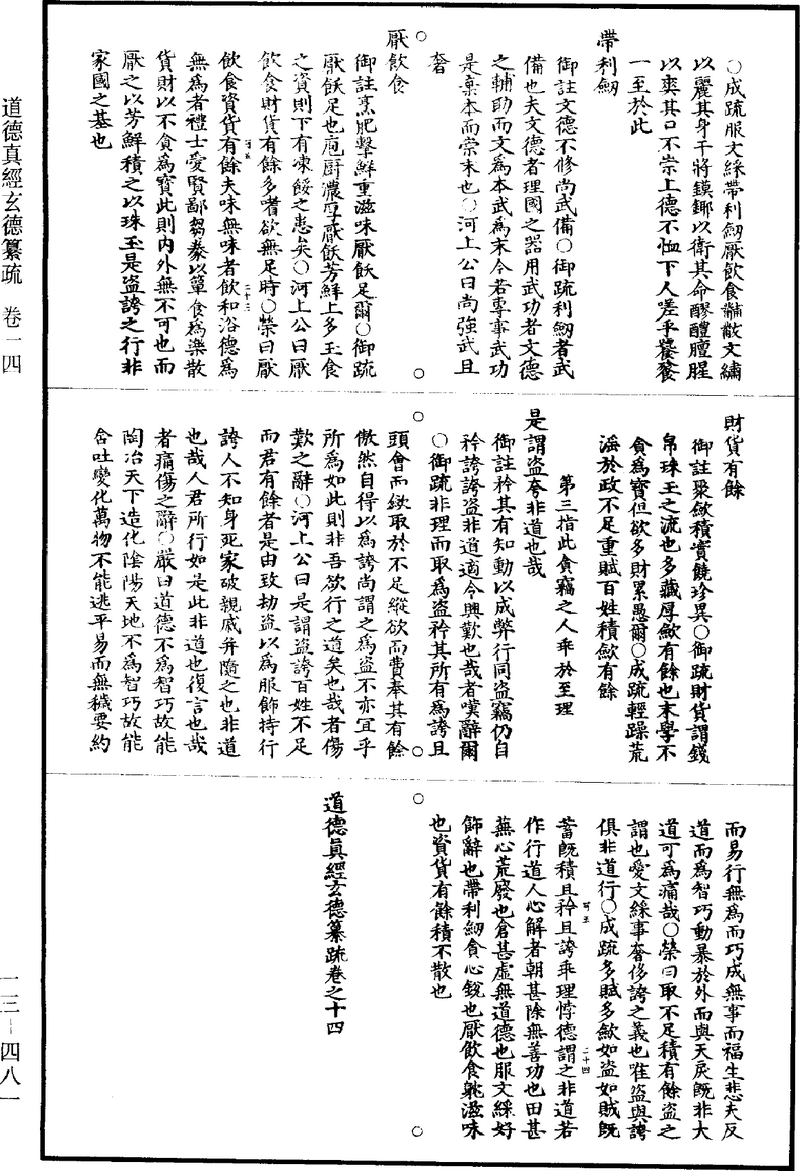 ○成疏服文綵帶利劒厭飲食黼黻文繡
以麗其身干將鏌鎁以衛其命醪醴膻腥
以爽其口不崇上德不恤下人嗟乎饕餮
一至於此
帶利劒
御註文德不修尚武備○御疏利劒者武
備也夫文德者理國之器用武功者文德
之輔助而文爲本武爲末今若專事武功
是棄本而崇末也○河上公曰尚強武且
奢
厭飲食
御註烹肥擊鮮重滋味厭飫足爾○御疏
厭飫足也庖厨濃厚厭飫芳鮮上多玉食
之資則下有凍餒之患矣○河上公曰厭
飲食財貨有餘多嗜欲無足時○榮曰厭
飲食資貨有餘夫味無味者飲和浴德爲
無爲者禮士愛賢鄙芻豢以簞食爲樂散
貨財以不貪爲寶此則内外無不可也而
厭之以芳鮮積之以珠玉是盜誇之行非
家國之基也
財貨有餘
御註聚斂積實饒珍異○御疏財貨謂錢
帛珠玉之流也多藏厚斂有餘也末學不
貪爲寶但欲多財累愚爾○成疏輕躁荒
滛於政不足重賦百姓積斂有餘
第三指此貪竊之人乖於至理
是謂盜夸非道也哉
御註矜其有知動以成弊行同盜竊仍自
矜誇誇盜非道適令興歎也哉者嘆辭爾
○御疏非理而取爲盜矜其所有爲誇且
頭會而斂取於不足縱欲而費奉其有餘
傲然自得以爲誇尚謂之爲盜不亦宜乎
所爲如此則非吾欲行之道矣也哉者傷
歎之辭○河上公曰是謂盜誇百姓不足
而君有餘者是由致劫盜以爲服飾持行
誇人不知身死家破親戚并隨之也非道
也哉人君所行如是此非道也復言也哉
者痛傷之辭○嚴曰道德不爲智巧故能
陶冶天下造化陰陽天地不爲智巧故能
含吐變化萬物不能逃平易而無穢要約
而易行無爲而巧成無事而福生悲夫反
道而爲智巧動暴於外而與天戾旣非大
道可爲痛哉○榮曰取不足積有餘盜之
謂也愛文綵事奢侈誇之義也唯盜與誇
俱非道行○成疏多賦多斂如盜如賊旣
蓄旣積且矜且誇乖理悖德謂之非道若
作行道人心解者朝甚除無善功也田甚
蕪心荒廢也倉甚虛無道德也服文綵好
飾辭也帶利劒貪心銳也厭飲食躭滋味
也資貨有餘積不散也
道德眞經玄德纂疏卷之十四
道德真經玄德纂疏 卷一四
一三-四八一